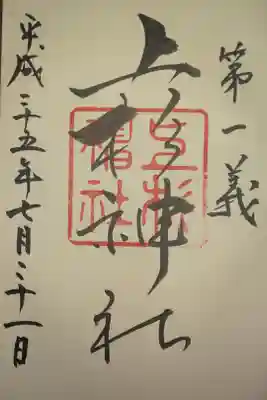 第一義
上杉神社
上杉神社
平成二十五年七月三十一日